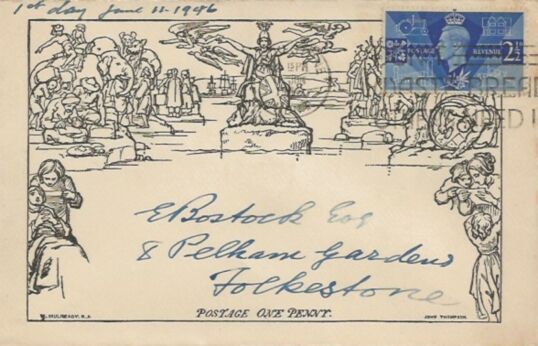 1st day June 11-1946
POSTAGE REVENUE 2½D
E Bostock Esq
8 Pelham Gardens
Folkestone
POSTAGE ONE PENNY.
W. MULREADY. R.A.
JOHN THOMPSON